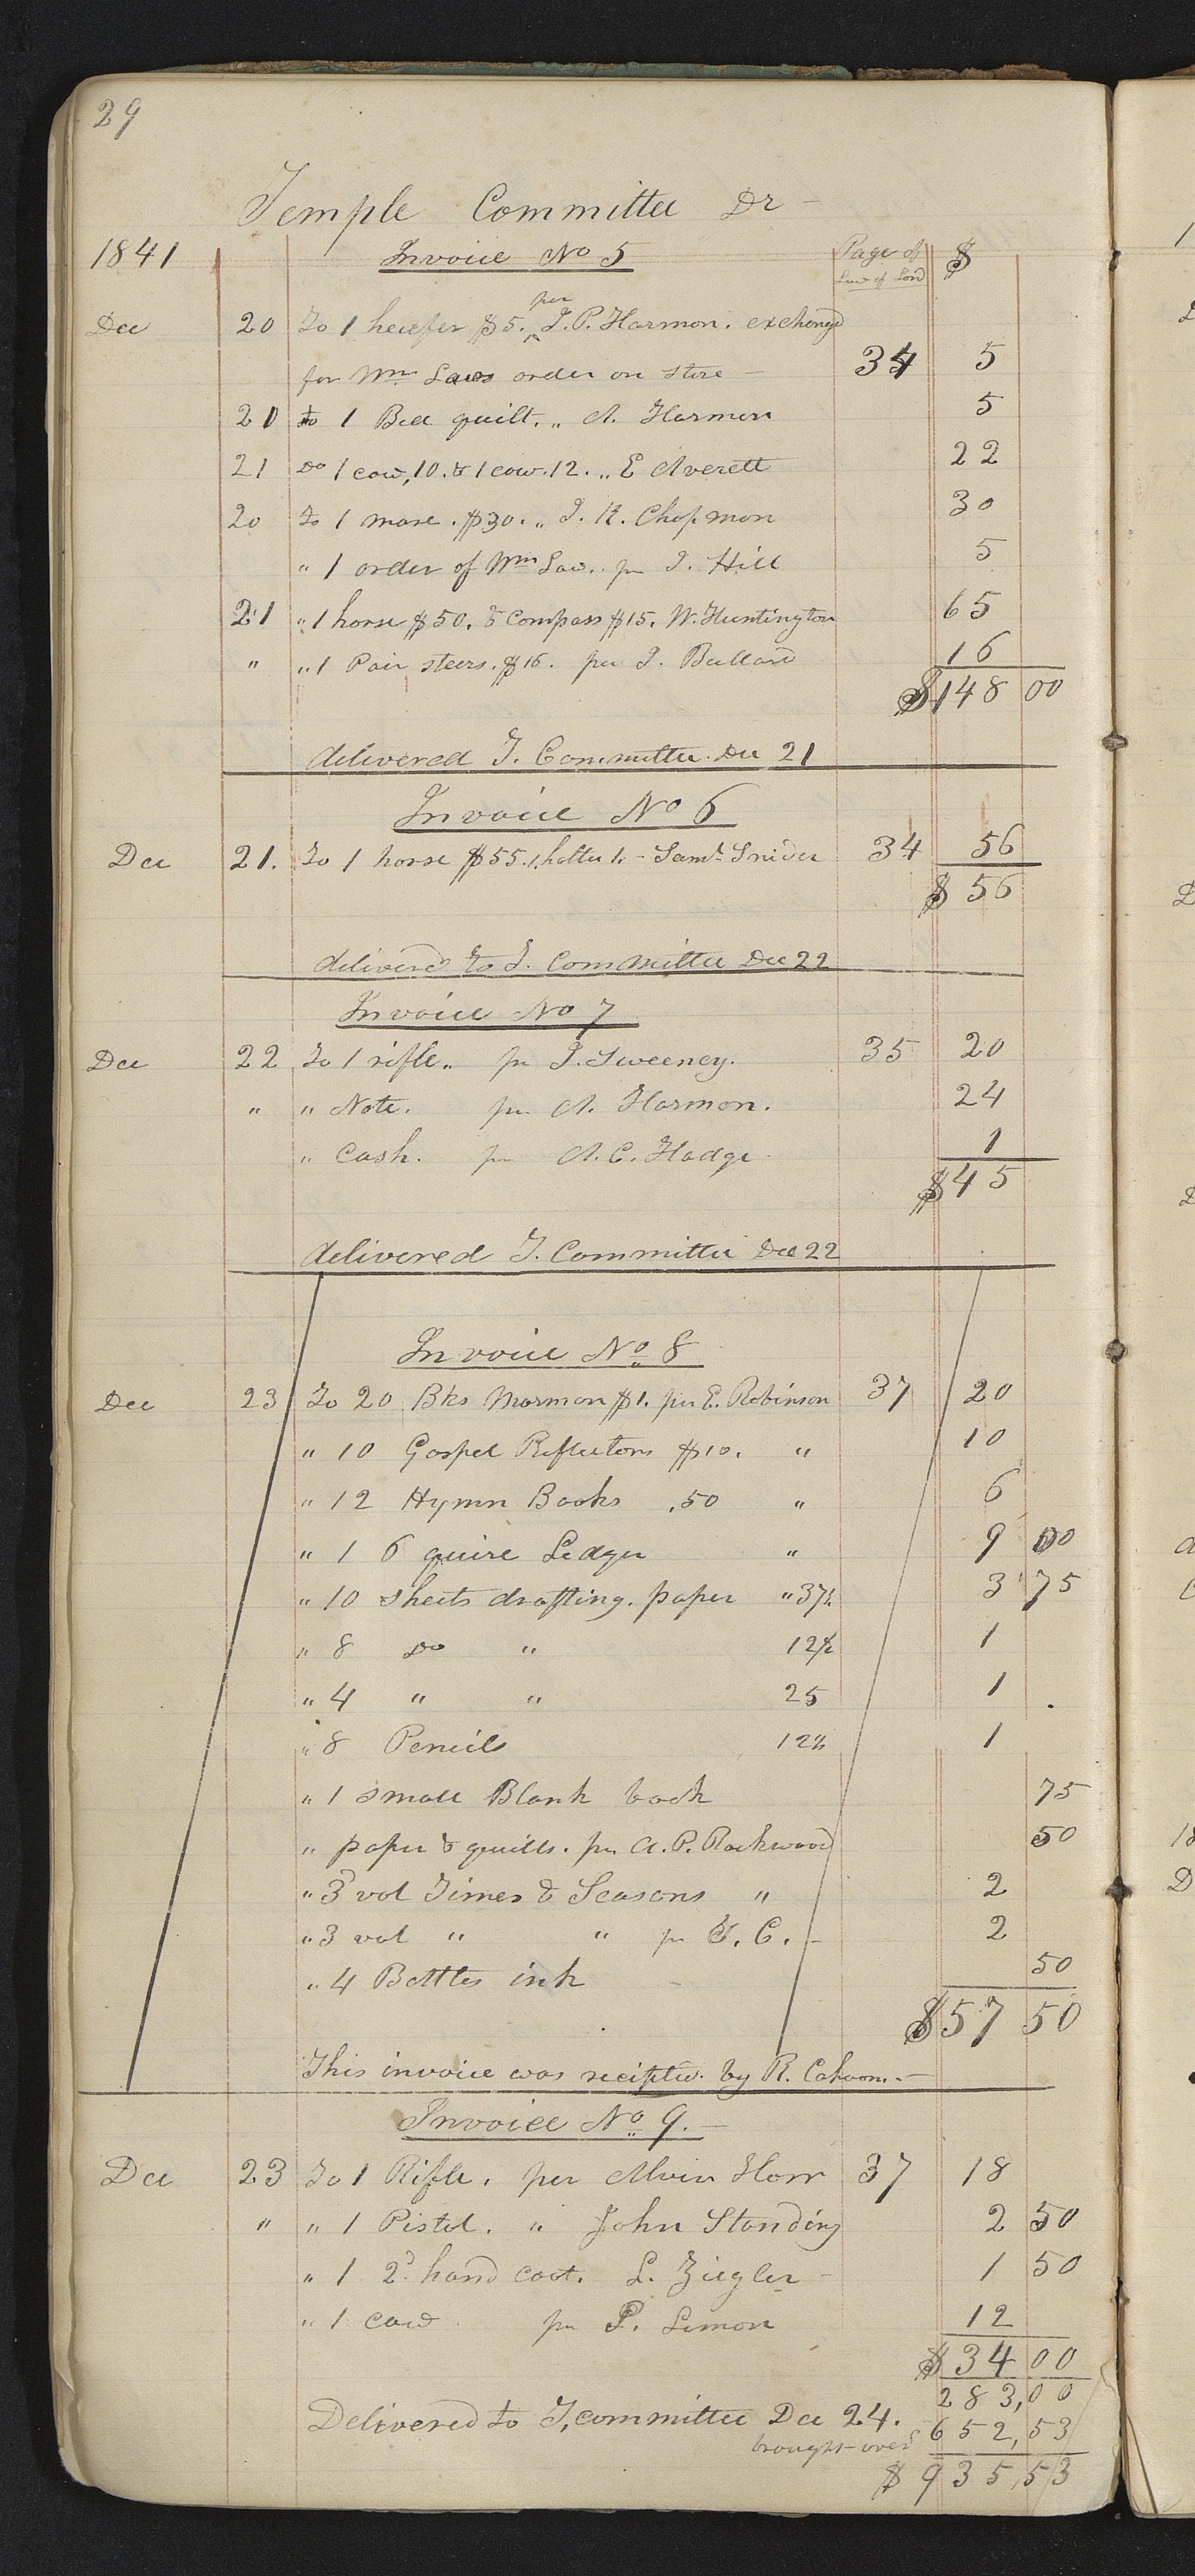 29
Temple Committee Dr
1841 Invoice No 5 Page of Law of Lord $
Dec 20 To 1 heiefer $5. per J. P. Harmon. exchangd
for Wm Laws order on store — 34 5
21 to 1 Bed quilt. " A. Harmon 5
21 Do 1 cow, 10. & 1 cow. 12. " E Averett 22
20 To 1 mare. $30. " J. K. Chapman 30
" 1 order of Wm Law. pr J. Hill 5
21 " 1 horse $50. & Compass $15. W. Huntington 65
" " 1 Pair steers. $16. per I. Bullard 16
$148 00
delivered T. Committee. Dec 21
Invoice No 6
Dec 21. To 1 horse $55. 1 1. - Saml Snider 34 56
$ 56
deliverd to T. Committee Dec 22
Invoice No 7
Dec 22 To 1 rifle " pr J. Sweeney. 35 20
" " Note. pr A. Harmon. 24
" Cash. pr A. C. Hodge 1
$45
delivered T. Committee Dec 22
Invoice No 8
Dec 23 To 20 Bks Mormon $1. per E. Robinson 37 20
" 10 Gospel Reflectors $10. " 10
" 12 Hymn Books .50 " 6
" 1 6 quire Ledger " 9 00
" 10 sheets drafting. paper " 37½ 3 75
" 8 Do " 12½ 1
" 4 " " 25 1
" 8 Pencils 12½ 1
" 1 small Blank book 75
" paper & quills. pr A. P. Rockwood 50
" 3d vol Times & Seasons " 2
" 3 vol " " pr C. - 2
" 4 Bottles ink - 50
$57 50
This invoice was by R. Cahoon. -
Invoice No 9. —
Dec 23 To 1 Rifle. per Alvin Horr 37 18
" " 1 Pistol. " John Standing 2 50
" 1 2d hand coat. L. Ziegler - 1 50
" 1 cow pr P. Limon 12
$34 00
283,00
Delivered to T, committee Dec 24.
brought over 652,53
$ 935,53